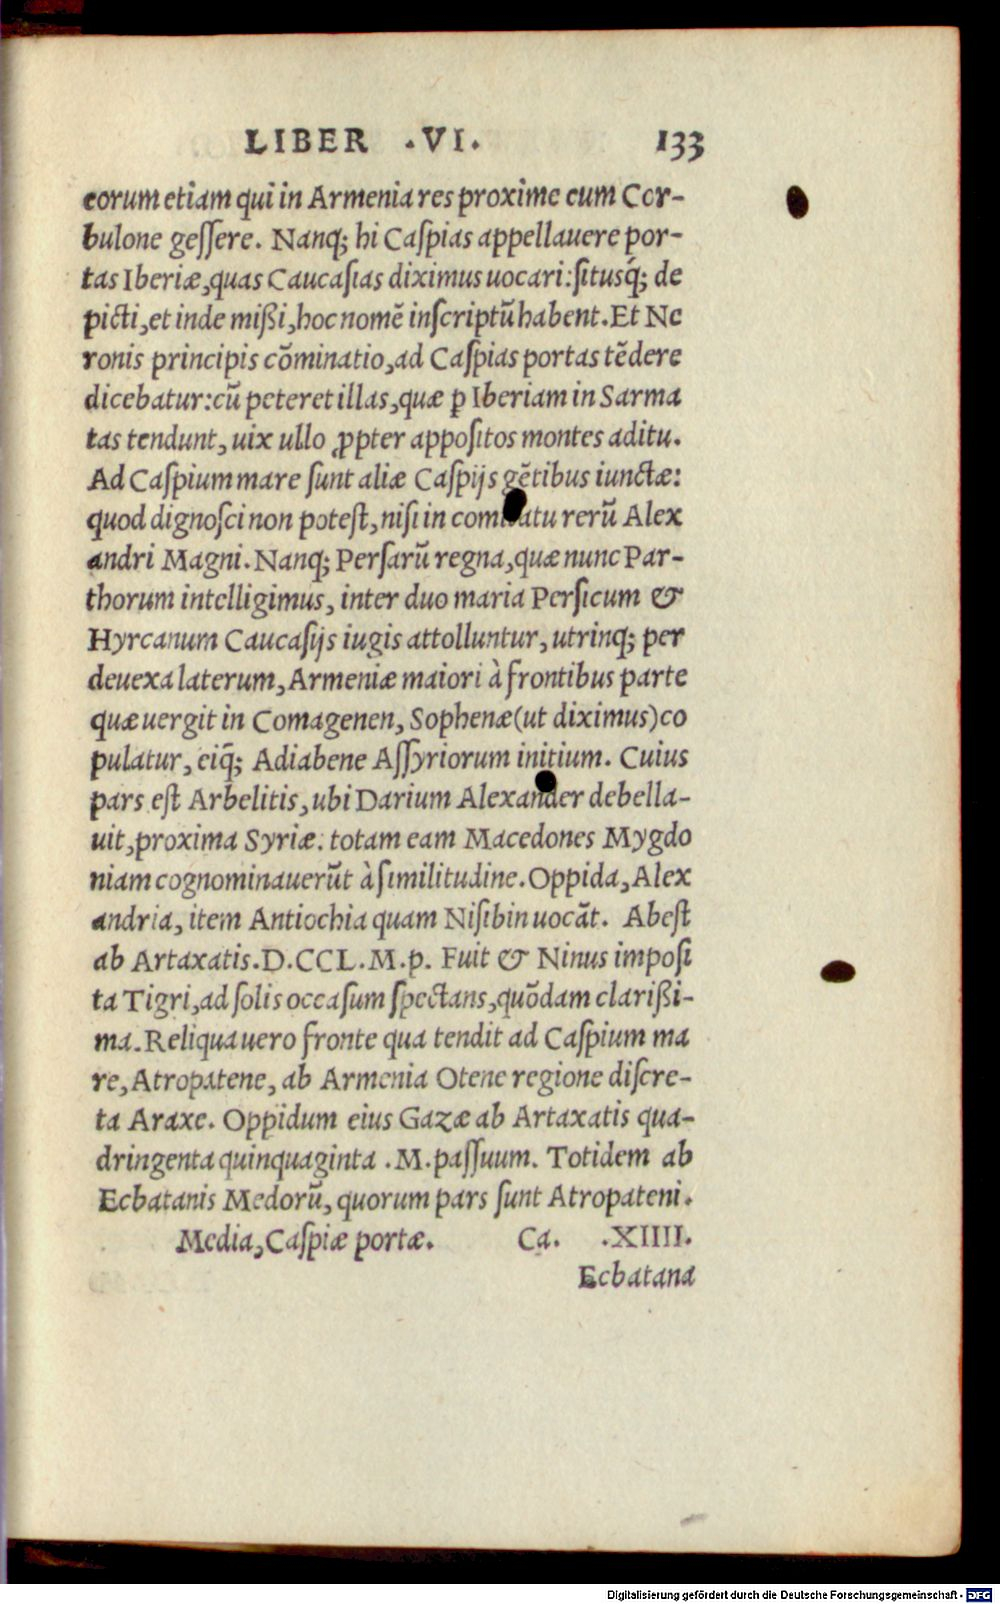 LIBER .VI. 133
eorum etiam qui in Armenia res proxime cum Cor-
bulone geſſere. Nanq; hi Caſpias appellauere por-
tas Iberiæ,quas Caucaſias diximus uocari:ſitusq́; de
picti,et inde mißi,hoc nomē inſcriptũ habent.Et Ne
ronis principis cōminatio,ad Caſpias portas tēdere
dicebatur:cũ peteret illas,quæ ꝑ Iberiam in Sarma
tas tendunt, uix ullo ꝓpter appoſitos montes aditu.
Ad Caſpium mare ſunt aliæ Caſpijs gētibus iunctæ:
quod dignoſci non poteſt, niſi in comitatu rerũ Alex
andri Magni. Nanq; Perſarũ regna,quæ nunc Par-
thorum intelligimus, inter duo maria Perſicum &
Hyrcanum Caucaſijs iugis attolluntur, utrinq; per
deuexa laterum, Armeniæ maiori à frontibus parte
quæ uergit in Comagenen, Sophenæ(ut diximus)co
pulatur, eiq̃; Adiabene Aſſyriorum initium. Cuius
pars eſt Arbelitis, ubi Darium Alexander debella-
uit,proxima Syriæ: totam eam Macedones Mygdo
niam cognominauerũt à ſimilitudine.Oppida, Alex
andria, item Antiochia quam Niſibin uocāt. Abeſt
ab Artaxatis.D.CCL.M.p. Fuit & Ninus impoſi
ta Tigri,ad ſolis occaſum ſpectans,quōdam clarißi-
ma.Reliqua uero fronte qua tendit ad Caſpium ma
re, Atropatene, ab Armenia Otene regione diſcre-
ta Araxe. Oppidum eius Gazæ ab Artaxatis qua-
dringenta quinquaginta .M.paſſuum. Totidem ab
Ecbatanis Medorũ, quorum pars ſunt Atropateni.
Media,Caſpiæ portæ. Ca. .XIIII.
Ecbatana
Digitalisierung gefördert durch die Deutsche Forschungsgemeinschaft - DFG